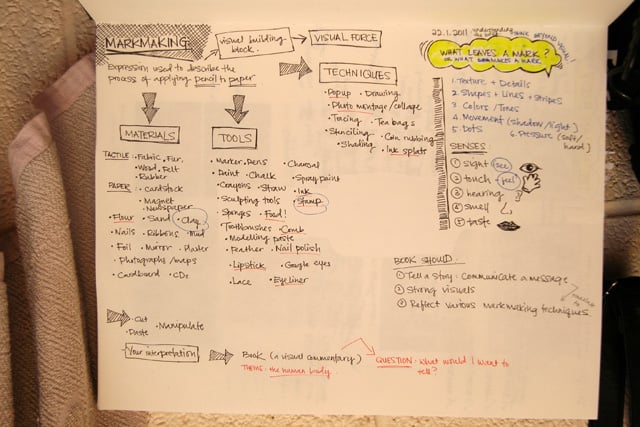 MARKMAKING
visual building block.
VISUAL FORCE
Expression used to describe the
process of applying pencil to paper
MATERIALS
TACTILE: • Fabric • Fur.
• Wood • Felt
• Rubber
PAPER: • cardstock
• Magnet
• Newspaper
• Flour • Sand • Clay
• Nails • Ribbons • Mud
• Foil • Mirror • Plaster
• Photographs / maps
• Cardboard • CDs
TOOLS
• Marker. Pens • Charcoal
• Paint • Chalk • Spray paint
• Crayons • Straw • Ink
• Sculpting tools • Stamp
• Sponges • Food!
• Toothbrushes • Comb
• Modelling paste
• Feather • Nail polish
• Lipstick • Google eyes
• Lace • Eyeliner
TECHNIQUES
• Popup • Drawing
• Photo montage / collage
• Tracing • Tea bags
• Stenciling • Coin rubbing
• Shading • Ink splats
• Cut
• Paste • Manipulate
Your interpretation
BOOK (a visual commentary)
THEME: the human body.
QUESTION: What would I want to
tell?
22.1.2011
THINK BEYOND VISUAL!
WHAT LEAVES A MARK?
OR WHAT MAKES A MARK.
1. Texture + Details
2. Shapes + Lines + Stripes
3. Colors / Tones
4. Movement (shadow/light)
5. Dots 6. Pressure (soft/
hard)
SENSES
1 sight (see)
2 touch (feel)
3 hearing
4 smell
5 taste
BOOK SHOULD.
1 Tell a story: Communicate a message
2 Strong visuals
3 Reflect various markmaking techniques.